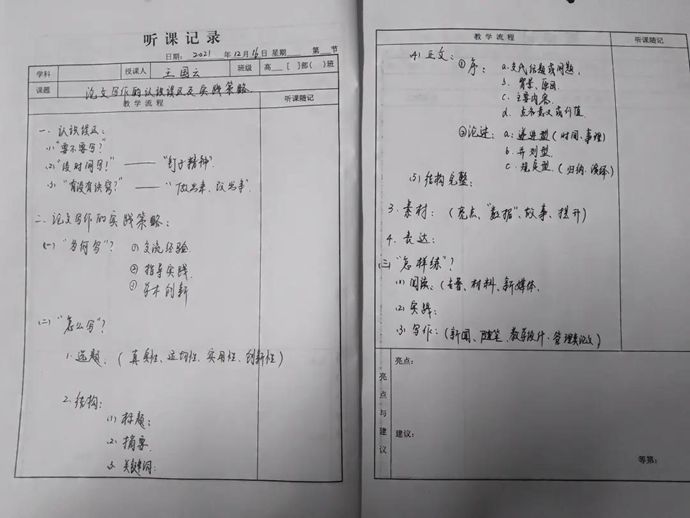 听课记录
日期：2021 年 12 月 16 日 星期 第 节
学科 授课人 王国云 班级 高 [ ]部( )班
课题 论文写作的认识误区及实践策略
教学流程 听课随记
一、认识误区：
(1) "要不要写？"
(2) "没时间写！" —— "钉子精神"．
(3) "有没有诀窍？" —— "做出来、改出来"
二、论文写作的实践策略：
(一) "为何写"？ ① 交流经验
② 指导实践
③ 学术创新
(二) "怎么写"？
1. 选题．(真实性、实用性、创新性)
2. 结构：
(1) 标题；
(2) 摘要
(3) 关键词：
教学流程 听课随记
(4) 正文：① 序： a. 交代话题或问题．
b. 背景、原因
c. 主要内容．
d. 意义或价值
② 论述： a. 递进型 (时间、事理)
b. 并列型．
c. (归纳、演绎)
(5) 结构完整；
3. 素材： (亮点、"数据"、故事、提升)
4. 表达：
(三) "怎样练"？
(1) 阅读：(专著、材料、新媒体．
(2) 实践：
(3) 写作：(新闻、随笔、教学设计、管理类论文)
亮点与建议
亮点：
建议：
等第：